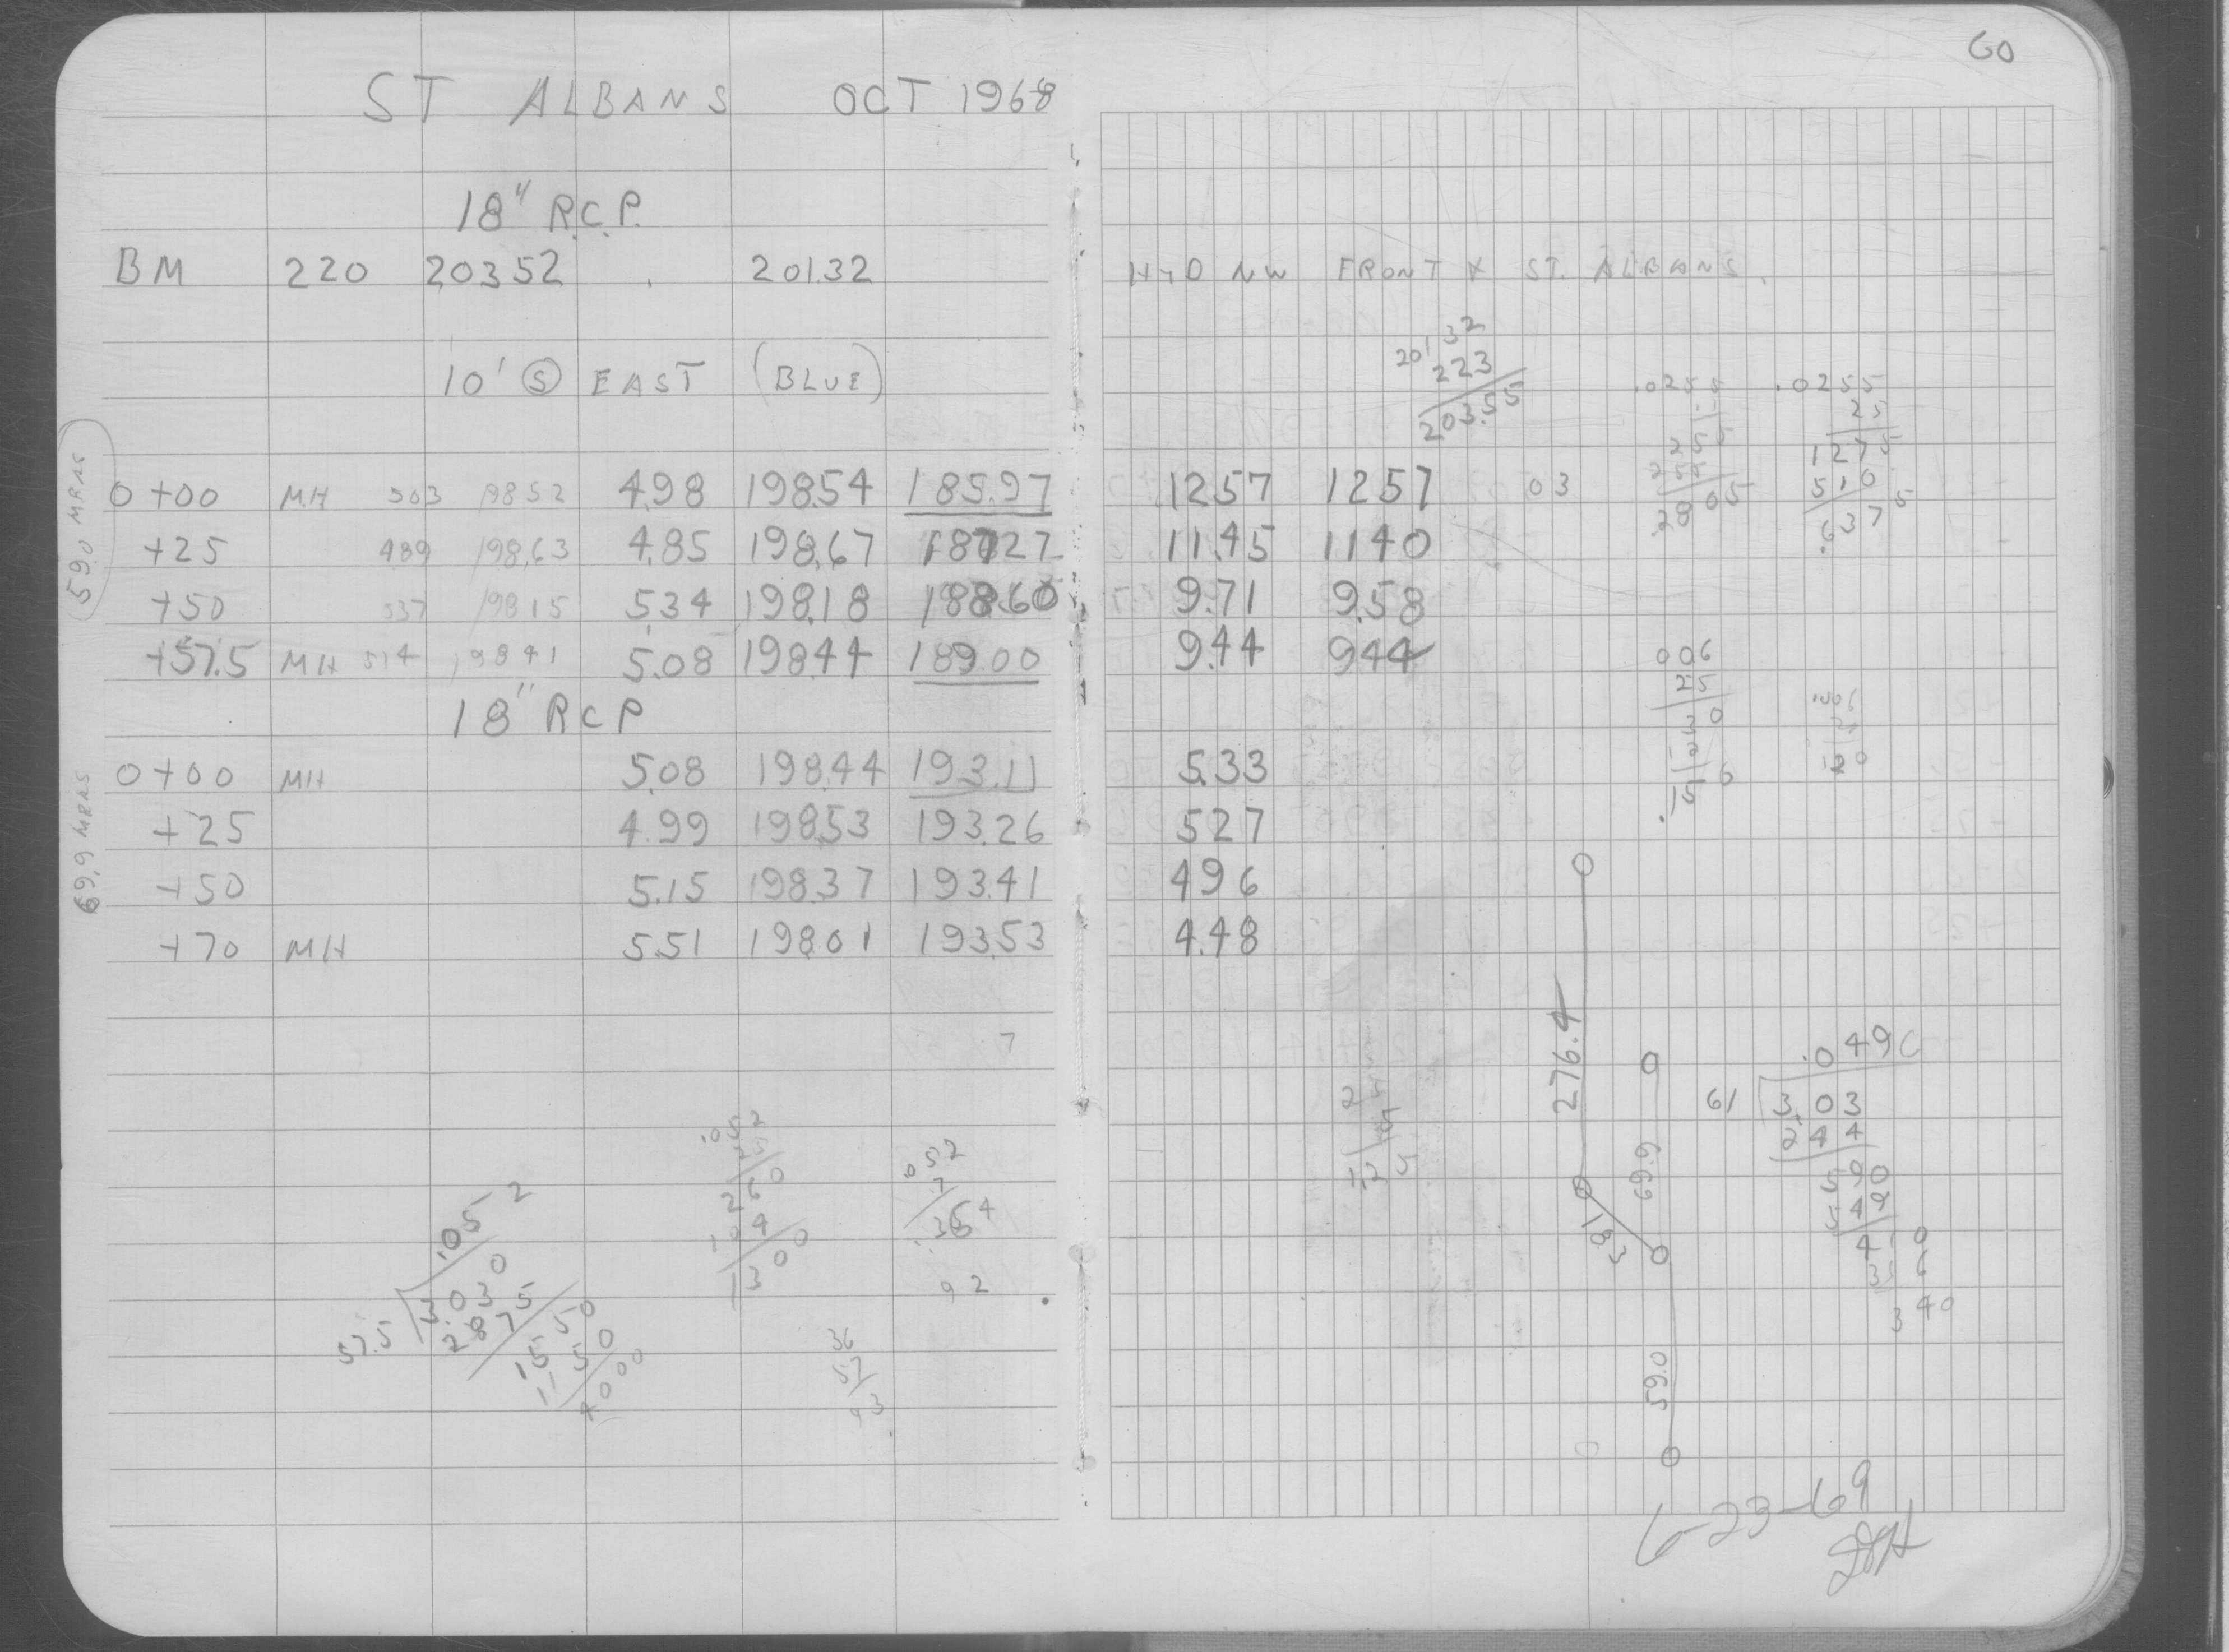 60
ST ALBANS OCT 1968
18" R.C.P.
BM 220 20352 201.32 HYD NW FRONT X ST. ALBANS.
10' Ⓢ EAST (BLUE)
59.0 MRNS
0+00 MH 503 19852 4.98 198.54 185.97 12.57 1257 03
+25 489 198.63 4.85 198.67 187.27 11.45 1140
+50 537 198 15 5.34 198.18 188.60 9.71 9.58
+57.5 MH 514 19841 5.08 198.44 189.00 9.44 944
18" RCP
69.9 MRNS
0+00 MH 5.08 198.44 193.11 5.33
+25 4.99 198.53 193.26 527
+50 5.15 198.37 193.41 496
+70 MH 5.51 198.01 193.53 4.48
7
.052
57.5 3.030
2.875
1550
1150
4000
.052
25
260
104
1300
.052
7
.364
92
36
57
93
201.32
223
203.55
.0255
255
255
.2805
.0255
25
1275
510
.6375
006
25
30
12
.15
.006
120
276.4
69.9
59.0
.049
61 3.03
2.44
590
549
410
366
340
6-23-69